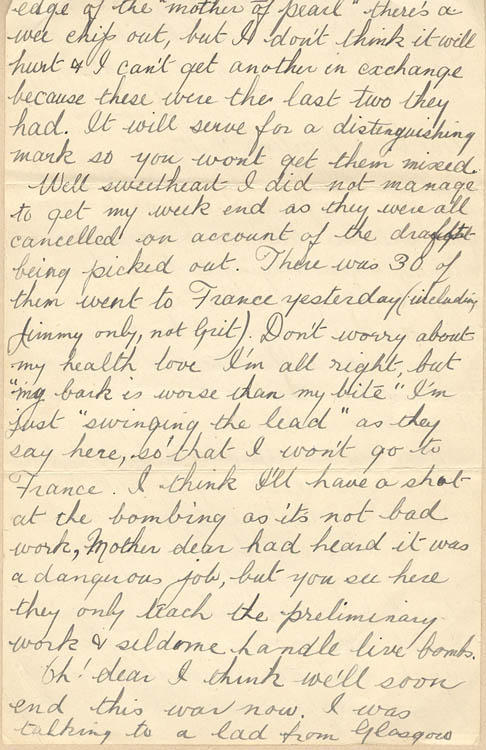 edge of the "mother of pearl" there's a
wee chip out, but I don't think it will
hurt & I can't get another in exchange
because these were the last two they
had. It will serve for a distinguishing
mark so you wont get them mixed.
Well sweetheart I did not manage
to get my week end as they were all
cancelled on account of the draft
being picked out. There was 30 of
them went to France yesterday (including
Jimmy only, not Grit). Don't worry about
my health love I'm all right, but
"my bark is worse than my bite" I'm
just "swinging the lead" as they
say here, so that I won't go to
France. I think I'll have a shot
at the bombing as its not bad
work, Mother dear had heard it was
a dangerous job, but you see here
they only teach the preliminary
work & seldome handle live bombs.
Oh! dear I think we'll soon
end this war now. I was
talking to a lad from Glasgow